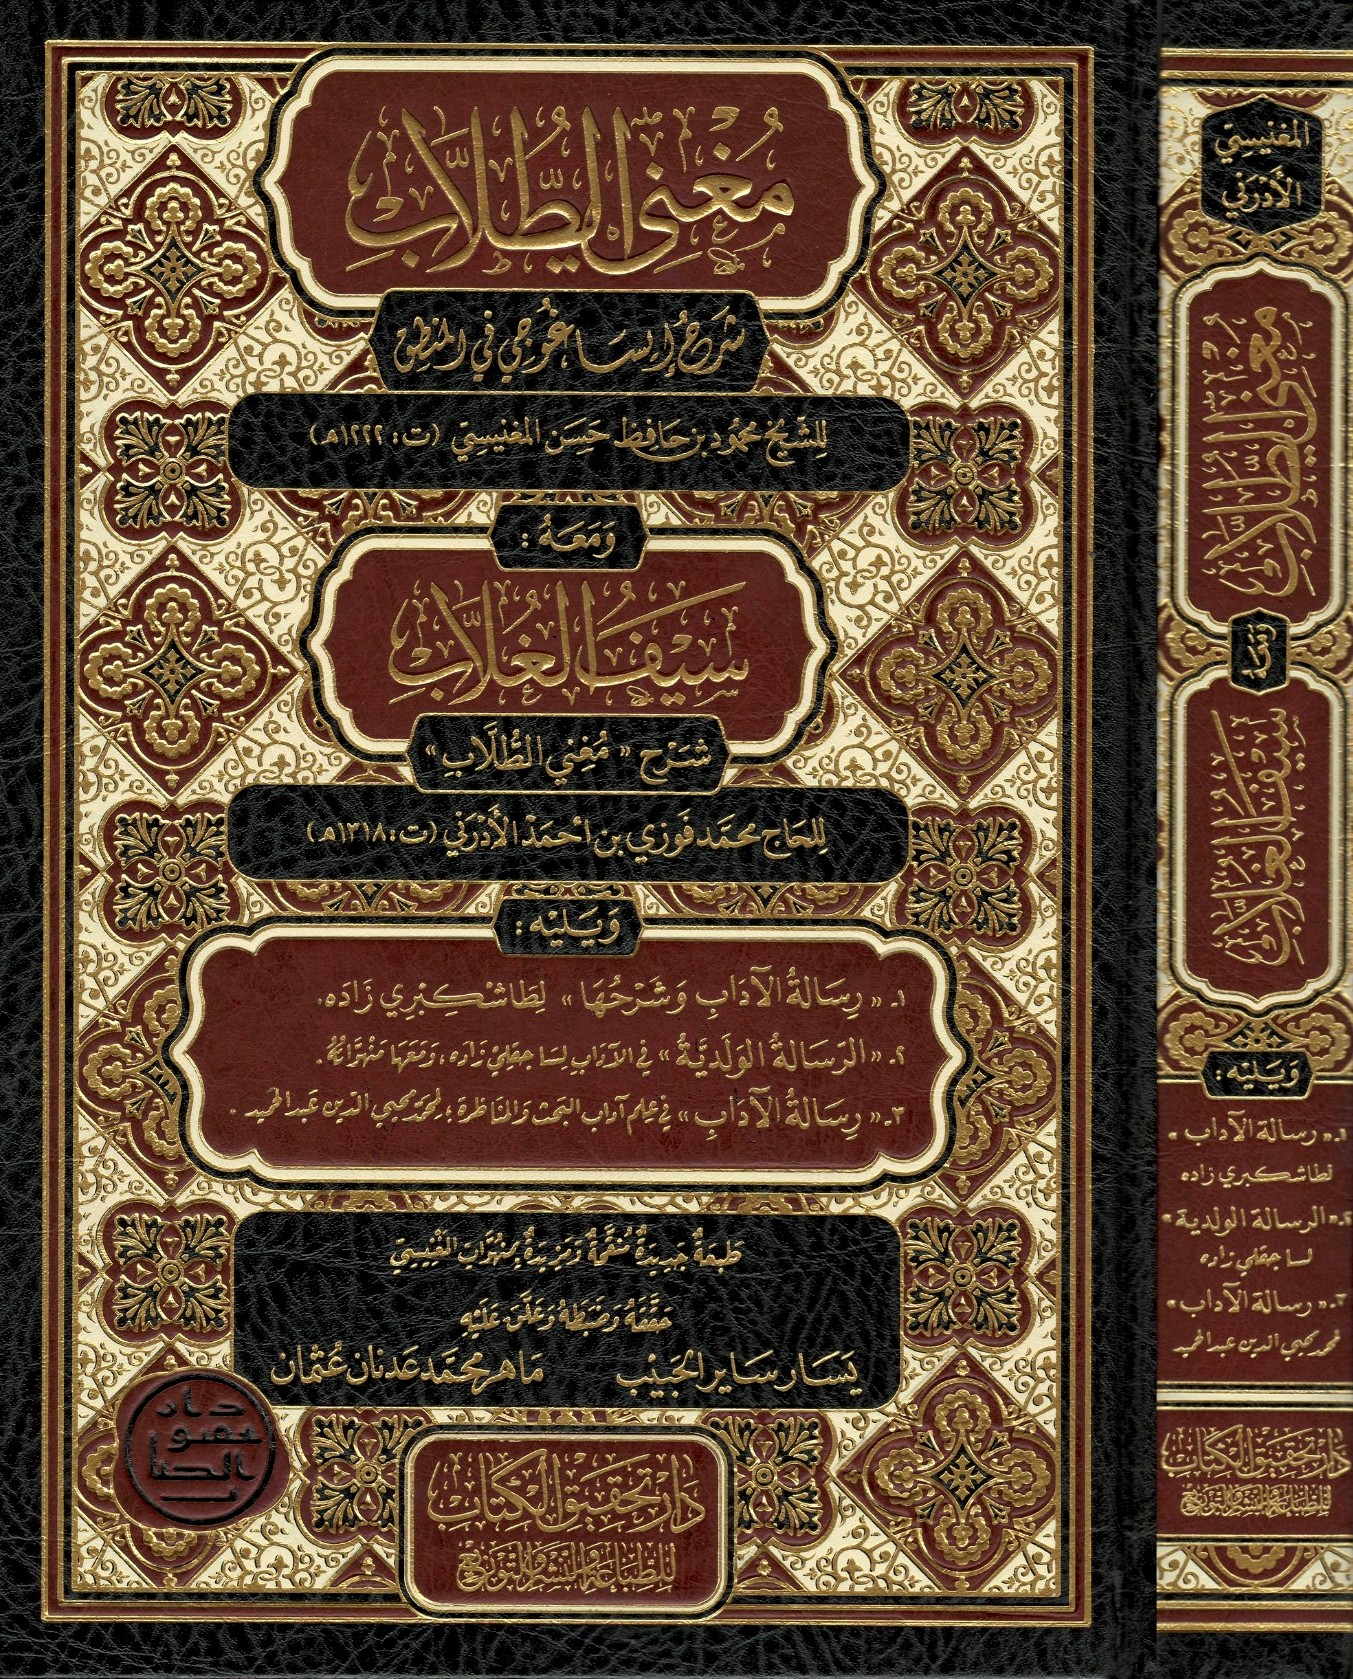 مُغْنِي الطُّلَّابِ
شَرْحُ إِيسَاغُوجِي فِي المَنْطِقِ
لِلشَّيْخِ مَحْمُود بْن حَافِظ حَسَن المَغْنِيسِيّ (ت: ١٢٢٢هـ)
وَمَعَهُ :
سَيْفُ الغُلَّابِ
شَرْح «مُغْنِي الطُّلَّابِ»
لِلحَاج مُحَمَّد فَوْزِي بن أَحْمَدَ الأَدَرْنَي (ت: ١٣١٨هـ)
وَيَلِيْه :
١ـ «رِسَالَةُ الآدَابِ وَشَرْحُهَا» لِطَاشْكُبْرِي زَادَه.
٢ـ «الرِّسَالَةُ الوَلَدِيَّةُ» فِي الآدَابِ لِسَاجَقْلِي زَادَه، وَمَعَهَا مَنْهُوَّاتُهُ.
٣ـ «رِسَالَةُ الآدَابِ» فِي عِلْمِ آدَابِ البَحْثِ وَالمُنَاظَرَةِ، لِمُحَمَّد مُحْيِي الدِّين عَبْد الحَمِيد.
طَبْعَةٌ جَدِيدَةٌ مُنَقَّحَةٌ وَمَزِيدَةٌ بِمَنْهُوَّاتِ المَغْنِيسِيّ
حَقَّقَهُ وَضَبَطَهُ وَعَلَّقَ عَلَيْهِ
يَسَار سَايِر الحَبِيْب مَاهِر مُحَمَّد عَدْنَان عُثْمَان
دَار تَحْقِيق الكِتَاب
لِلطِّبَاعَةِ وَالنَّشْرِ وَالتَّوْزِيعِ
المَغْنِيسِيّ
الأَدَرْنَي
مُغْنِي الطُّلَّابِ
وَمَعَهُ
سَيْفُ الغُلَّابِ
وَيَلِيْه :
١ـ «رسالة الآداب»
لطاشكبري زاده
٢ـ «الرسالة الولدية»
لساجقلي زاده
٣ـ «رسالة الآداب»
لمحمد محيي الدين عبد الحميد
دَار تَحْقِيق الكِتَاب
لِلطِّبَاعَةِ وَالنَّشْرِ وَالتَّوْزِيعِ